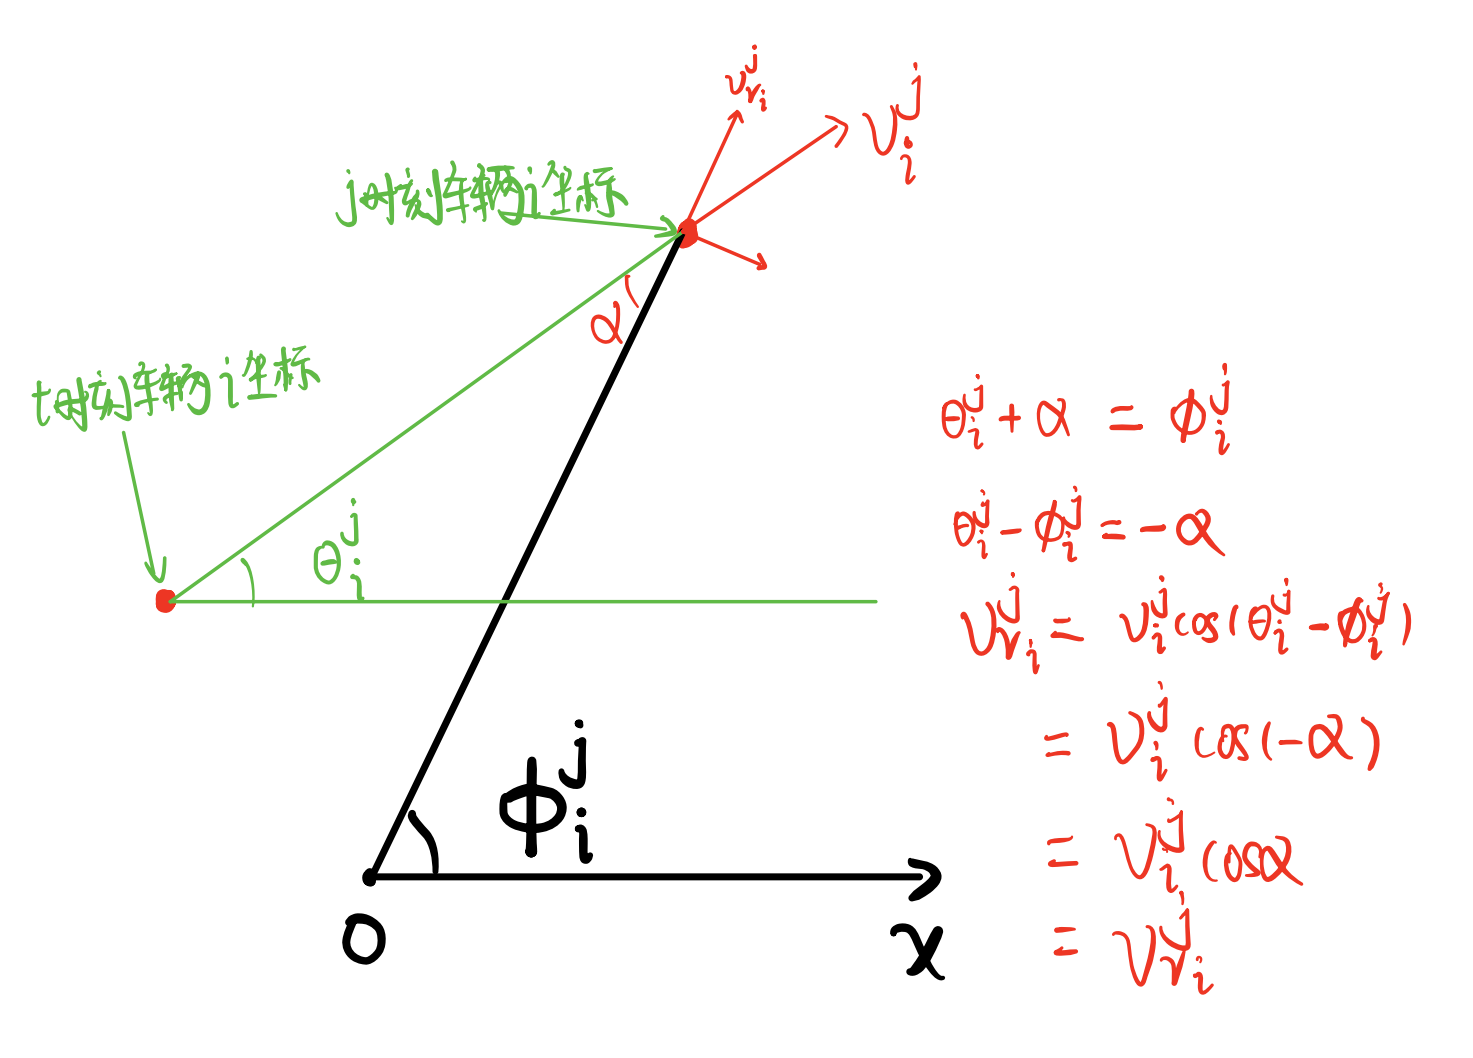 v_{r_i}^j
v_i^j
j时刻车辆i坐标
α
t时刻车辆i坐标
θ_i^j
θ_i^j + α = φ_i^j
θ_i^j - φ_i^j = -α
v_{r_i}^j = v_i^j cos(θ_i^j - φ_i^j)
= v_i^j cos(-α)
= v_i^j cosα
= v_{r_i}^j
φ_i^j
O
x